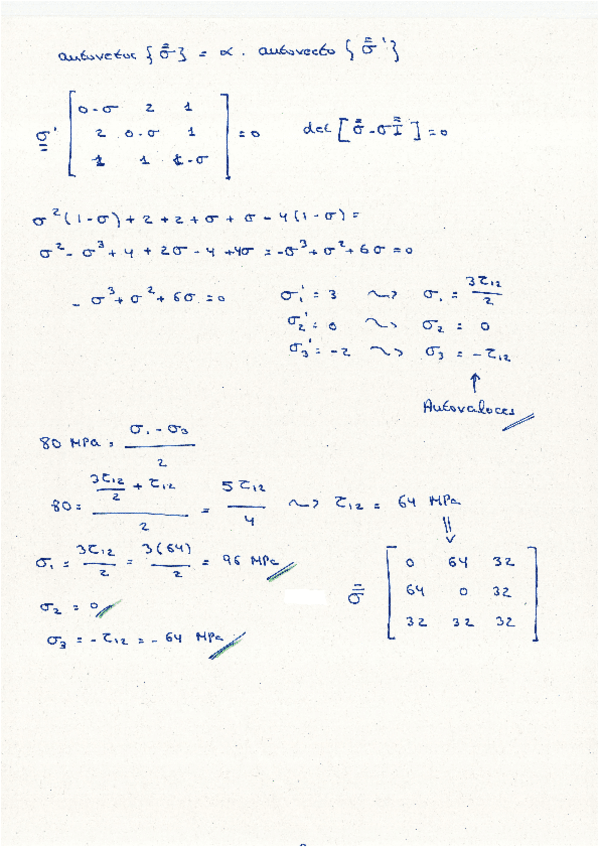 autovector {σ̿} = α · autovecto {σ̿'}
σ̿' [ 0-σ 2 1 ; 2 0-σ 1 ; 1 1 1-σ ] = 0 det [σ̿ - σI̿] = 0
σ²(1-σ) + 2 + 2 + σ + σ - 4(1-σ) =
σ² - σ³ + 4 + 2σ - 4 + 4σ = -σ³ + σ² + 6σ = 0
- σ³ + σ² + 6σ = 0 σ₁' = 3 ⇝ σ₁ = 3τ₁₂/2
σ₂' = 0 ⇝ σ₂ = 0
σ₃' = -2 ⇝ σ₃ = -τ₁₂
↑
Autovalores
80 MPa = (σ₁ - σ₃)/2
80 = (3τ₁₂/2 + τ₁₂)/2 = 5τ₁₂/4 ⇝ τ₁₂ = 64 MPa
⇓
σ₁ = 3τ₁₂/2 = 3(64)/2 = 96 MPa
σ̿ [ 0 64 32 ; 64 0 32 ; 32 32 32 ]
σ₂ = 0
σ₃ = -τ₁₂ = -64 MPa